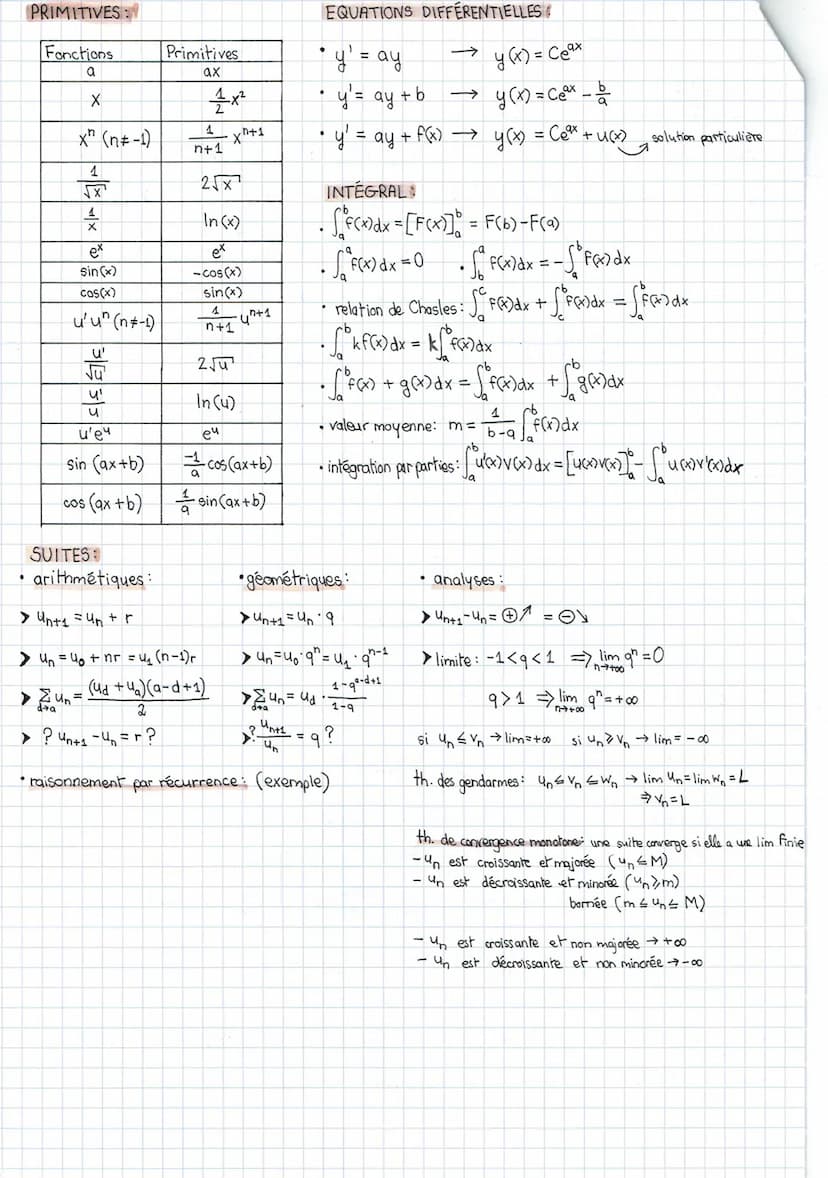 PRIMITIVES :
Fonctions | Primitives
a | ax
x | 1/2 x²
xⁿ (n≠-1) | 1/(n+1) xⁿ⁺¹
1/√x | 2√x
1/x | ln(x)
eˣ | eˣ
sin(x) | -cos(x)
cos(x) | sin(x)
u'uⁿ (n≠-1) | 1/(n+1) uⁿ⁺¹
u'/√u | 2√u
u'/u | ln(u)
u'eᵘ | eᵘ
sin (ax+b) | -1/a cos(ax+b)
cos (ax+b) | 1/a sin(ax+b)
EQUATIONS DIFFÉRENTIELLES :
• y' = ay → y(x) = Ceᵃˣ
• y' = ay + b → y(x) = Ceᵃˣ - b/a
• y' = ay + f(x) → y(x) = Ceᵃˣ + u(x) solution particulière
INTÉGRAL :
• ∫ₐᵇ f(x)dx = [F(x)]ₐᵇ = F(b)-F(a)
• ∫ₐᵃ f(x)dx = 0 • ∫_b^a f(x)dx = -∫ₐᵇ f(x)dx
• relation de Chasles : ∫ₐᶜ f(x)dx + ∫_c^b f(x)dx = ∫ₐᵇ f(x)dx
• ∫ₐᵇ kf(x)dx = k∫ₐᵇ f(x)dx
• ∫ₐᵇ f(x) + g(x)dx = ∫ₐᵇ f(x)dx + ∫ₐᵇ g(x)dx
• valeur moyenne : m = 1/(b-a) ∫ₐᵇ f(x)dx
• intégration par parties : ∫ₐᵇ u'(x)v(x)dx = [u(x)v(x)]ₐᵇ - ∫ₐᵇ u(x)v'(x)dx
SUITES :
• arithmétiques :
➤ uₙ₊₁ = uₙ + r
➤ uₙ = u₀ + nr = u₁ (n-1)r
➤ Σ_{d→a} uₙ = (u_d + u_a)(a-d+1)/2
➤ ? uₙ₊₁ - uₙ = r ?
• raisonnement par récurrence : (exemple)
• géométriques :
➤ uₙ₊₁ = uₙ · q
➤ uₙ = u₀ · qⁿ = u₁ · qⁿ⁻¹
➤ Σ_{d→a} uₙ = u_d · (1-q^(a-d+1))/(1-q)
➤ ? uₙ₊₁/uₙ = q ?
• analyses :
➤ uₙ₊₁ - uₙ = ⊕↗ = ⊖↘
➤ limite : -1<q<1 ⇒ lim_{n→+∞} qⁿ = 0
q>1 ⇒ lim_{n→+∞} qⁿ = +∞
si uₙ ≤ vₙ → lim = +∞ si uₙ ≥ vₙ → lim = -∞
th. des gendarmes : uₙ ≤ vₙ ≤ wₙ → lim uₙ = lim wₙ = L
⇒ vₙ = L
th. de convergence monotone : une suite converge si elle a une lim finie
- uₙ est croissante et majorée (uₙ ≤ M)
- uₙ est décroissante et minorée (uₙ ≥ m)
bornée (m ≤ uₙ ≤ M)
- uₙ est croissante et non majorée → +∞
- uₙ est décroissante et non minorée → -∞